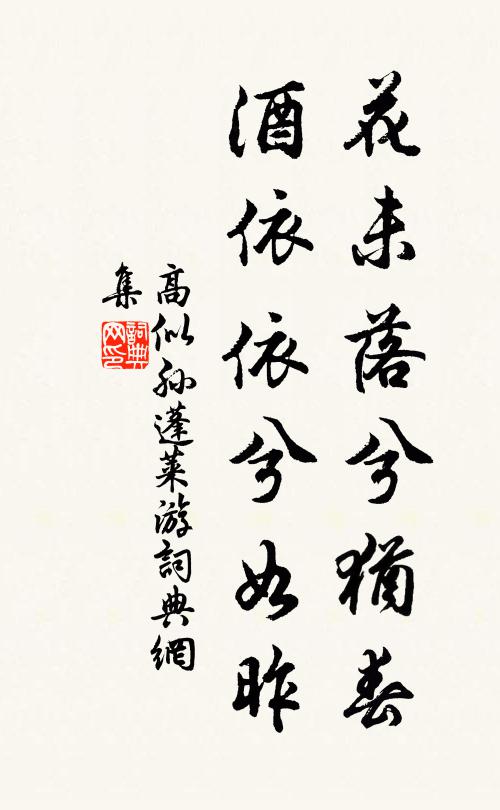 花未落兮猶春
酒依依兮如昨
高似孫蓬萊游詞典網
集
詞典
网印